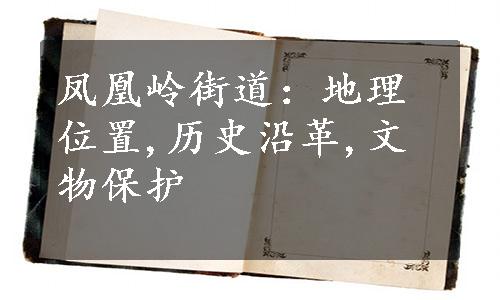 凤凰岭街道：地理
位置,历史沿革,文
物保护